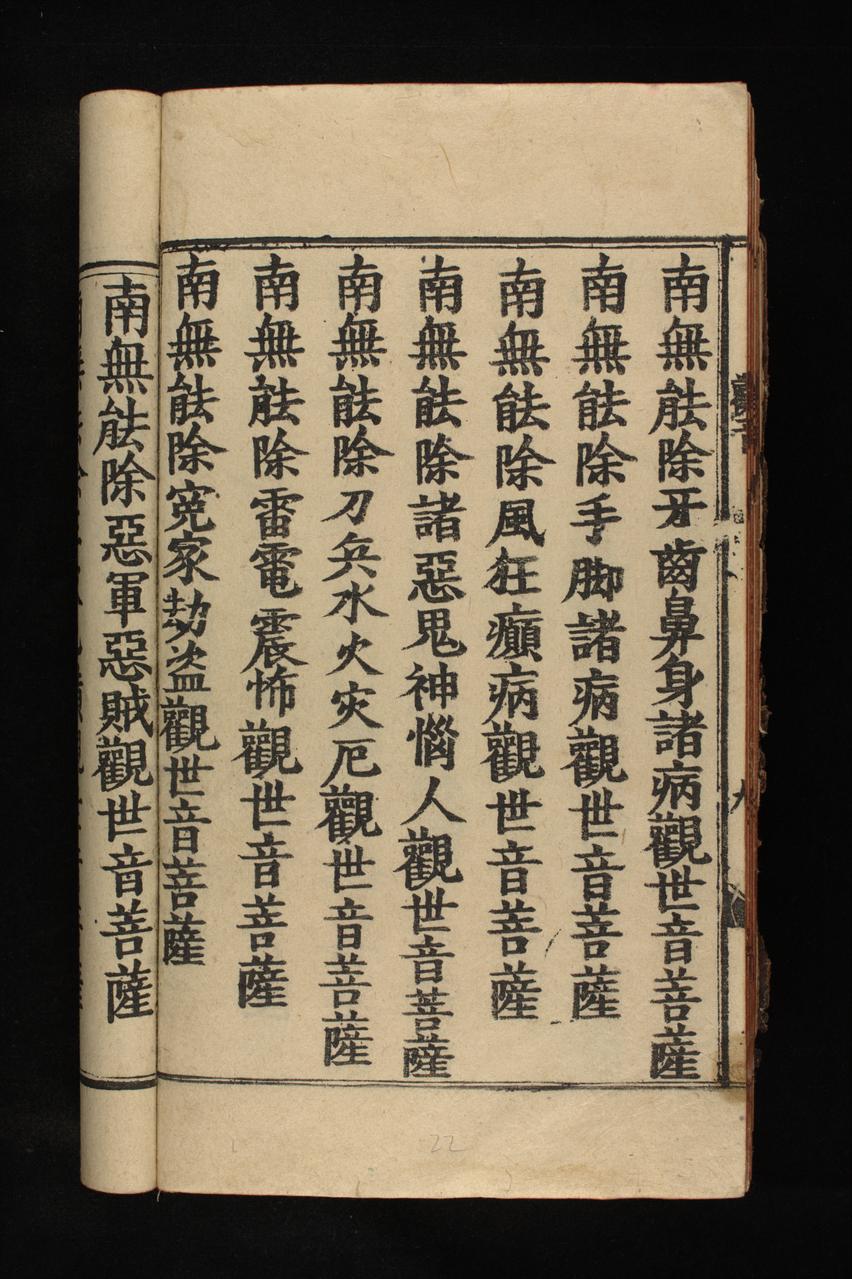 南無能除牙齒鼻身諸病觀世音菩薩
南無能除手脚諸病觀世音菩薩
南無能除風狂癲病觀世音菩薩
南無能除諸惡鬼神惱人觀世音菩薩
南無能除刀兵水火灾厄觀世音菩薩
南無能除雷電震怖觀世音菩薩
南無能除寃家劫盗觀世音菩薩
南無能除惡軍惡賊觀世音菩薩
22